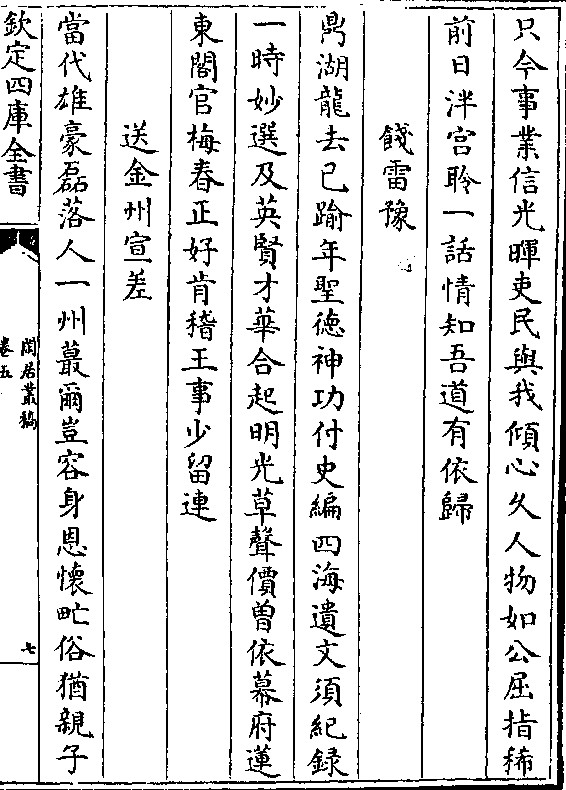 只今事業信光暉吏民與我傾心久人物如公屈指稀
前日泮宮聆一話情知吾道有依歸
餞雷豫
鼎湖龍去已踰年聖德神功付史編四海遺文須紀録
一時妙選及英賢才華合起明光草聲價曽依幕府蓮
東閣官梅春正好肯稽王事少留連
送金州宣差
當代雄豪磊落人一州蕞爾豈容身恩懐甿俗猶親子
欽定四庫全書
閒居叢稿
卷五
七